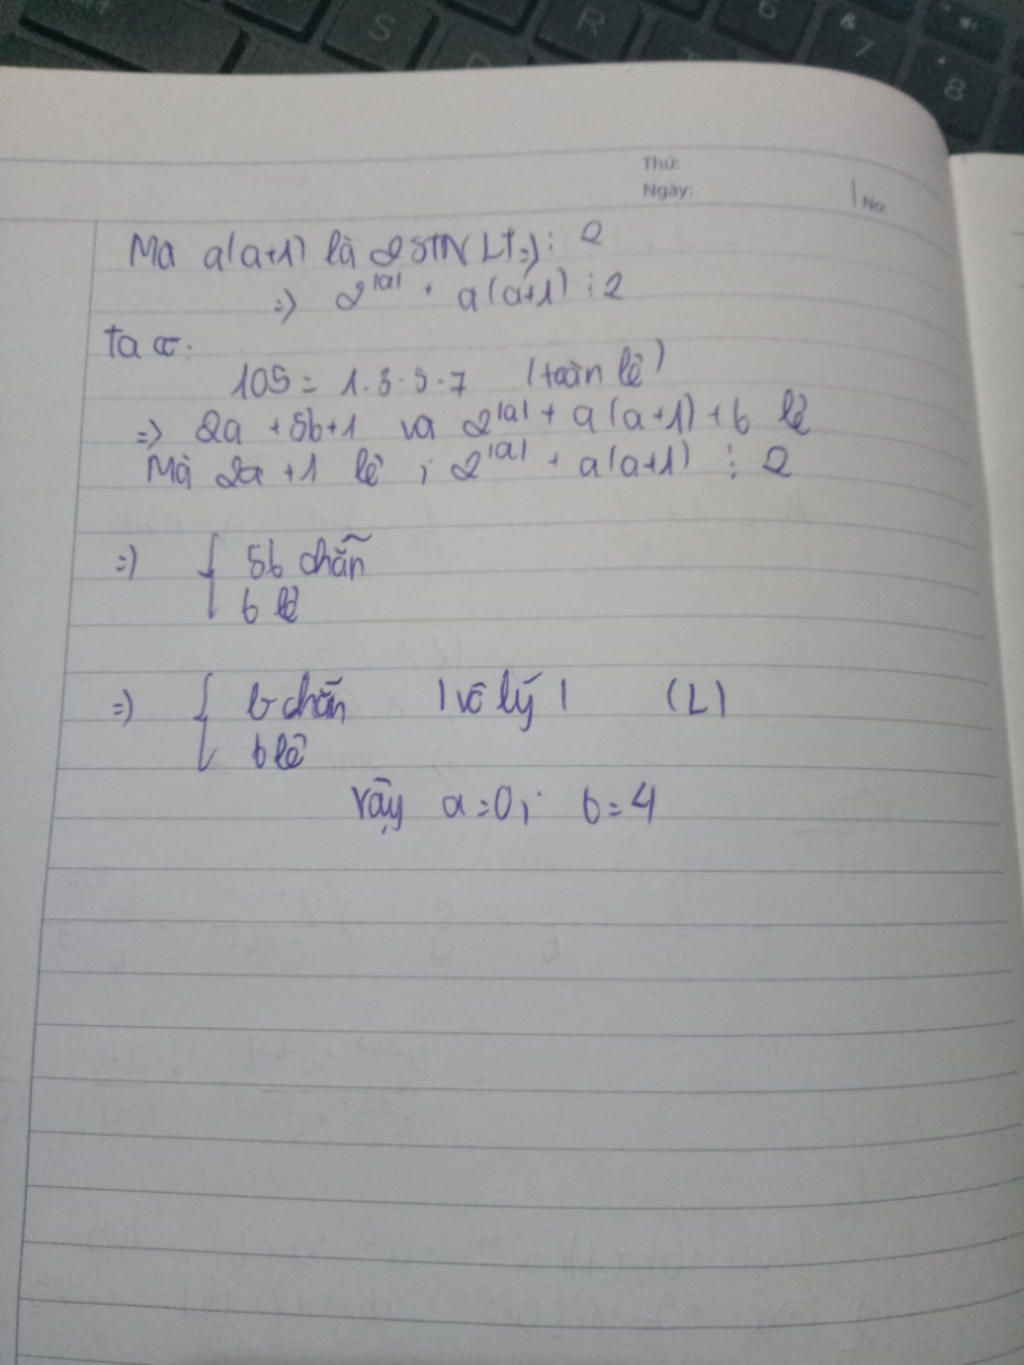 S
R
6
&
7
*
8
Thứ:
Ngày:
No:
Mà a(a+1) là 2 STN LT => ⋮ 2
=> 2^|a| + a(a+1) ⋮ 2
Ta có:
105 = 1.3.5.7 (toàn lẻ)
=> 2a + 5b+1 và 2^|a| + a(a+1) + b lẻ
Mà 2a +1 lẻ ; 2^|a| + a(a+1) ⋮ 2
=> { 5b chẵn
b lẻ
=> { b chẵn (vô lý) (L)
b lẻ
Vậy a=0; b=4